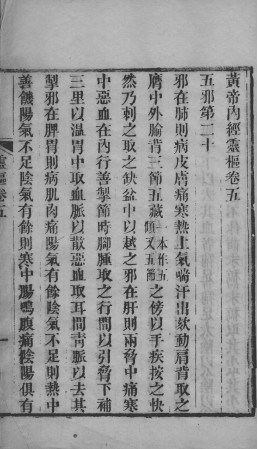 黃帝內經靈樞卷五
五邪第二十
邪在肺則病皮膚痛寒熱上氣喘汗出欬動肩背取之
膺中外腧背三節五藏一本作五顀又五節之傍以手疾按之快
然乃刺之取之缺盆中以越之邪在肝則兩脅中痛寒
中惡血在內行善掣節時脚腫取之行間以引脅下補
三里以溫胃中取血脈以散惡血取耳間靑脈以去其
掣邪在脾胃則病肌肉痛陽氣有餘陰氣不足則熱中
善饑陽氣不足陰氣有餘則寒中腸鳴腹痛陰陽俱有
靈樞卷五